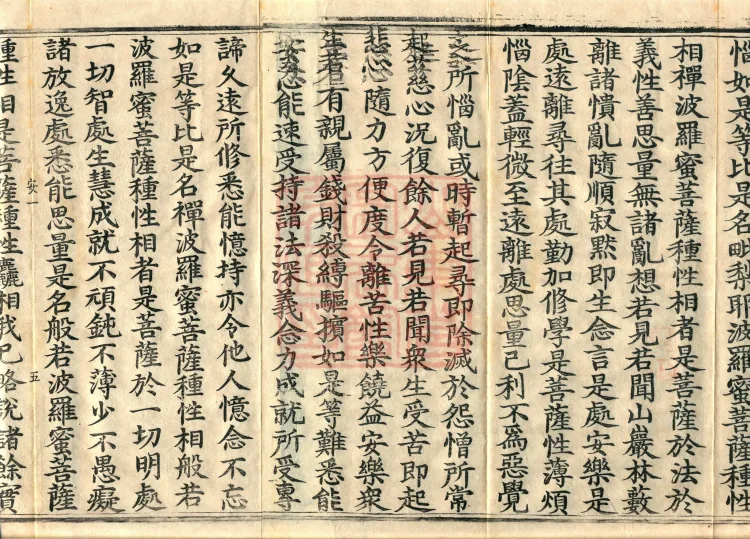 惱如是等比是名毗梨耶波羅蜜菩薩種性
相禪波羅蜜菩薩種性相者是菩薩於法於
義性善思量無諸亂想若見若聞山巖林藪
離諸憒亂隨順寂默即生念言是處安樂是
處遠離尋往其處勤加修學是菩薩性薄煩
惱陰蓋輕微至遠離處思量己利不爲惡覺
之所惱亂或時暫起尋即除滅於怨憎所常
起慈心況復餘人若見若聞衆生受苦即起
悲心隨力方便度令離苦性樂饒益安樂衆
生若有親屬錢財殺縛驅擯如是等難悉能
安忍能速受持諸法深義念力成就所受專
諦久遠所修悉能憶持亦令他人憶念不忘
如是等比是名禪波羅蜜菩薩種性相般若
波羅蜜菩薩種性相者是菩薩於一切明處
一切智處生慧成就不頑鈍不薄少不愚癡
諸放逸處悉能思量是名般若波羅蜜菩薩
安一 五
種性相是菩薩種性麤相我已略說諸餘實